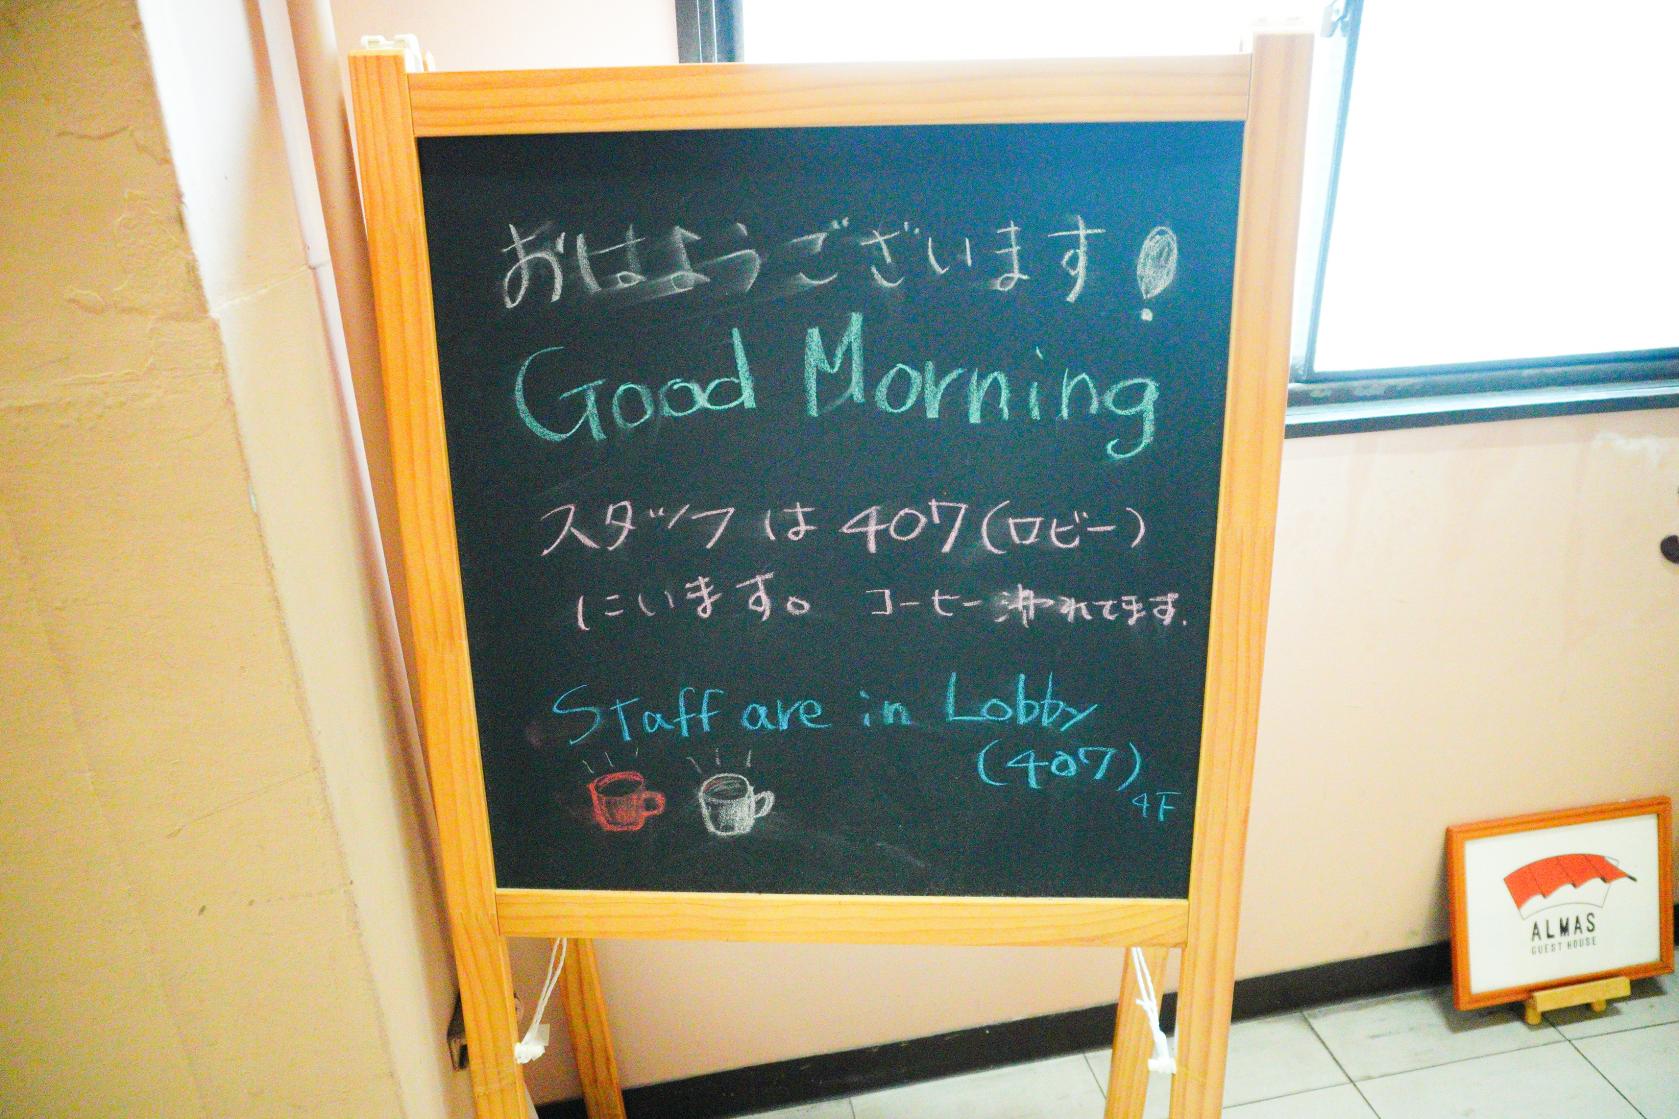 おはようございます!
Good Morning
スタッフは407(ロビー)
にいます。 コーヒー れてます.
Staff are in Lobby
(407)
4F
ALMAS
GUEST HOUSE